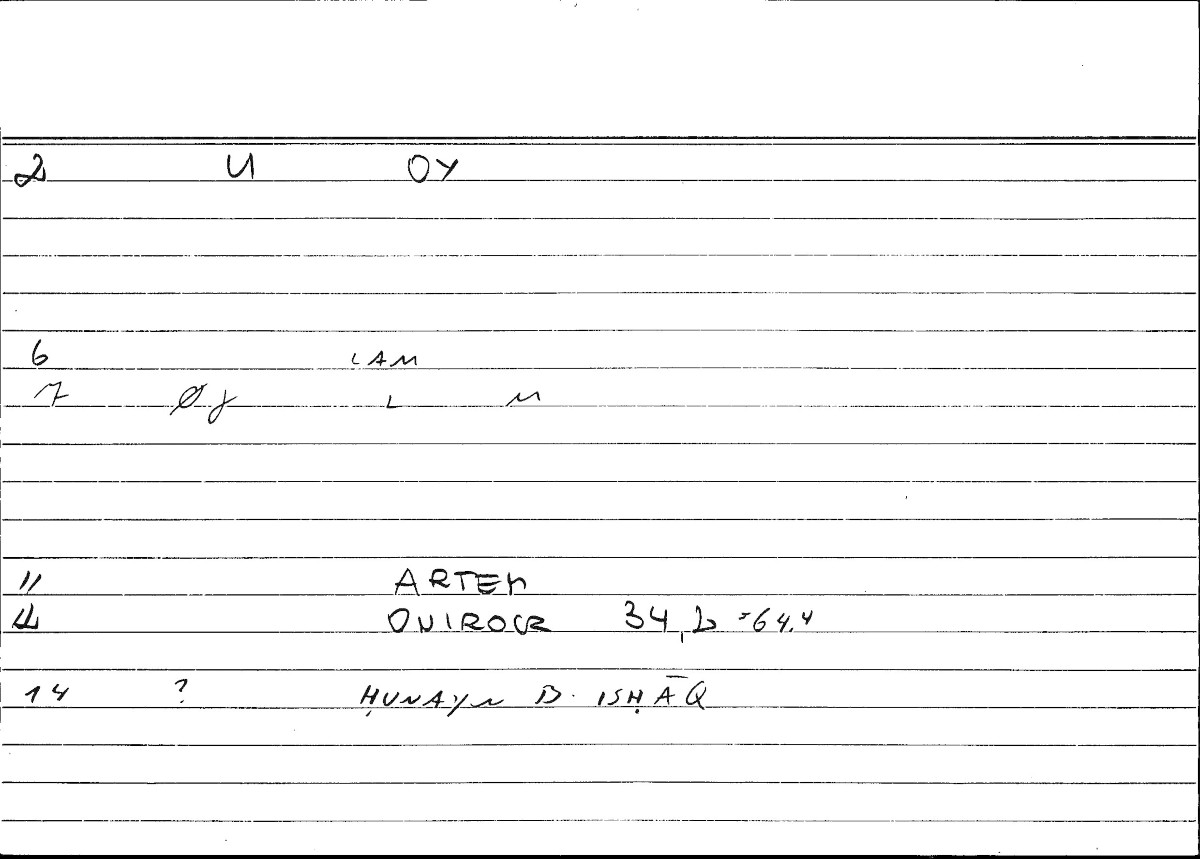 2 U OY
6 LAM
7 Øy L M
11 ARTEM
ONIROCR 34,2 =64.4
14 ? ḤUNAYN B. ISḤĀQ